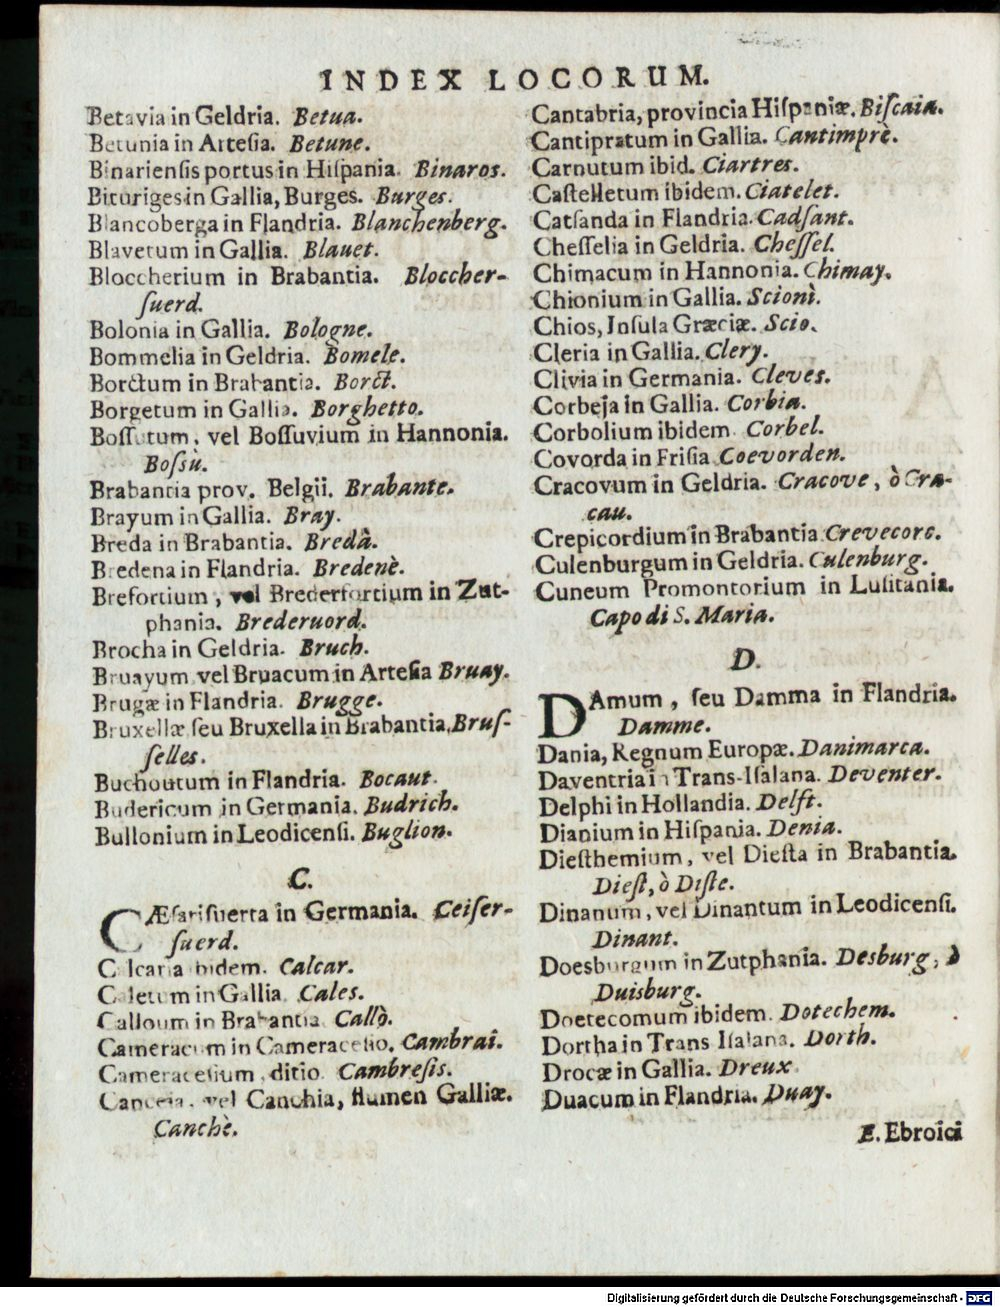 INDEX LOCORUM.
Betavia in Geldria. Betua.
Betunia in Artesia. Betune.
Binariensis portus in Hiſpania. Binaros.
Bituriges in Gallia, Burges. Burges.
Blancoberga in Flandria. Blanchenberg.
Blavetum in Gallia. Blauet.
Bloccherium in Brabantia. Bloccher-
ſuerd.
Bolonia in Gallia. Bologne.
Bommelia in Geldria. Bomele.
Borctum in Brabantia. Borct.
Borgetum in Gallia. Borghetto.
Boſſutum, vel Boſſuvium in Hannonia.
Boſsù.
Brabantia prov. Belgii. Brabante.
Brayum in Gallia. Bray.
Breda in Brabantia. Bredà.
Bredena in Flandria. Bredenè.
Brefortium, vel Brederfortium in Zut-
phania. Brederuord.
Brocha in Geldria. Bruch.
Bruayum vel Bruacum in Arteſia Bruay.
Brugæ in Flandria. Brugge.
Bruxellæ ſeu Bruxella in Brabantia. Bruſ-
ſelles.
Buchoutum in Flandria. Bocaut.
Budericum in Germania. Budrich.
Bullonium in Leodicenſi. Buglion.
C.
CÆſariſuerta in Germania. Ceiſer-
ſuerd.
Calcaria ibidem. Calcar.
Caletum in Gallia. Cales.
Calloum in Brabantia. Callò.
Cameracum in Cameraceſio. Cambrai.
Cameraceſium, ditio. Cambreſis.
Canceia, vel Canchia, flumen Galliæ.
Canchè.
Cantabria, provincia Hiſpaniæ. Biſcaia.
Cantipratum in Gallia. Cantimprè.
Carnutum ibid. Ciartres.
Caſtelletum ibidem. Ciatelet.
Catſanda in Flandria. Cadſant.
Cheſſelia in Geldria. Cheſſel.
Chimacum in Hannonia. Chimay.
Chionium in Gallia. Scionì.
Chios, Inſula Græciæ. Scio.
Cleria in Gallia. Clery.
Clivia in Germania. Cleves.
Corbeja in Gallia. Corbia.
Corbolium ibidem. Corbel.
Covorda in Friſia. Coevorden.
Cracovum in Geldria. Cracove, ò Cra-
cau.
Crepicordium in Brabantia. Crevecorc.
Culenburgum in Geldria. Culenburg.
Cuneum Promontorium in Luſitania.
Capo di S. Maria.
D.
DAmum, ſeu Damma in Flandria.
Damme.
Dania, Regnum Europæ. Danimarca.
Daventria in Trans-Iſalana. Deventer.
Delphi in Hollandia. Delft.
Dianium in Hiſpania. Denia.
Dieſthemium, vel Dieſta in Brabantia.
Dieſt, ò Diſte.
Dinanum, vel Dinantum in Leodicenſi.
Dinant.
Doesburgum in Zutphania. Desburg, ò
Duisburg.
Doetecomum ibidem. Dotechem.
Dortha in Trans Iſalana. Dorth.
Drocæ in Gallia. Dreux.
Duacum in Flandria. Duay.
E. Ebroici
Digitalisierung gefördert durch die Deutsche Forschungsgemeinschaft - DFG